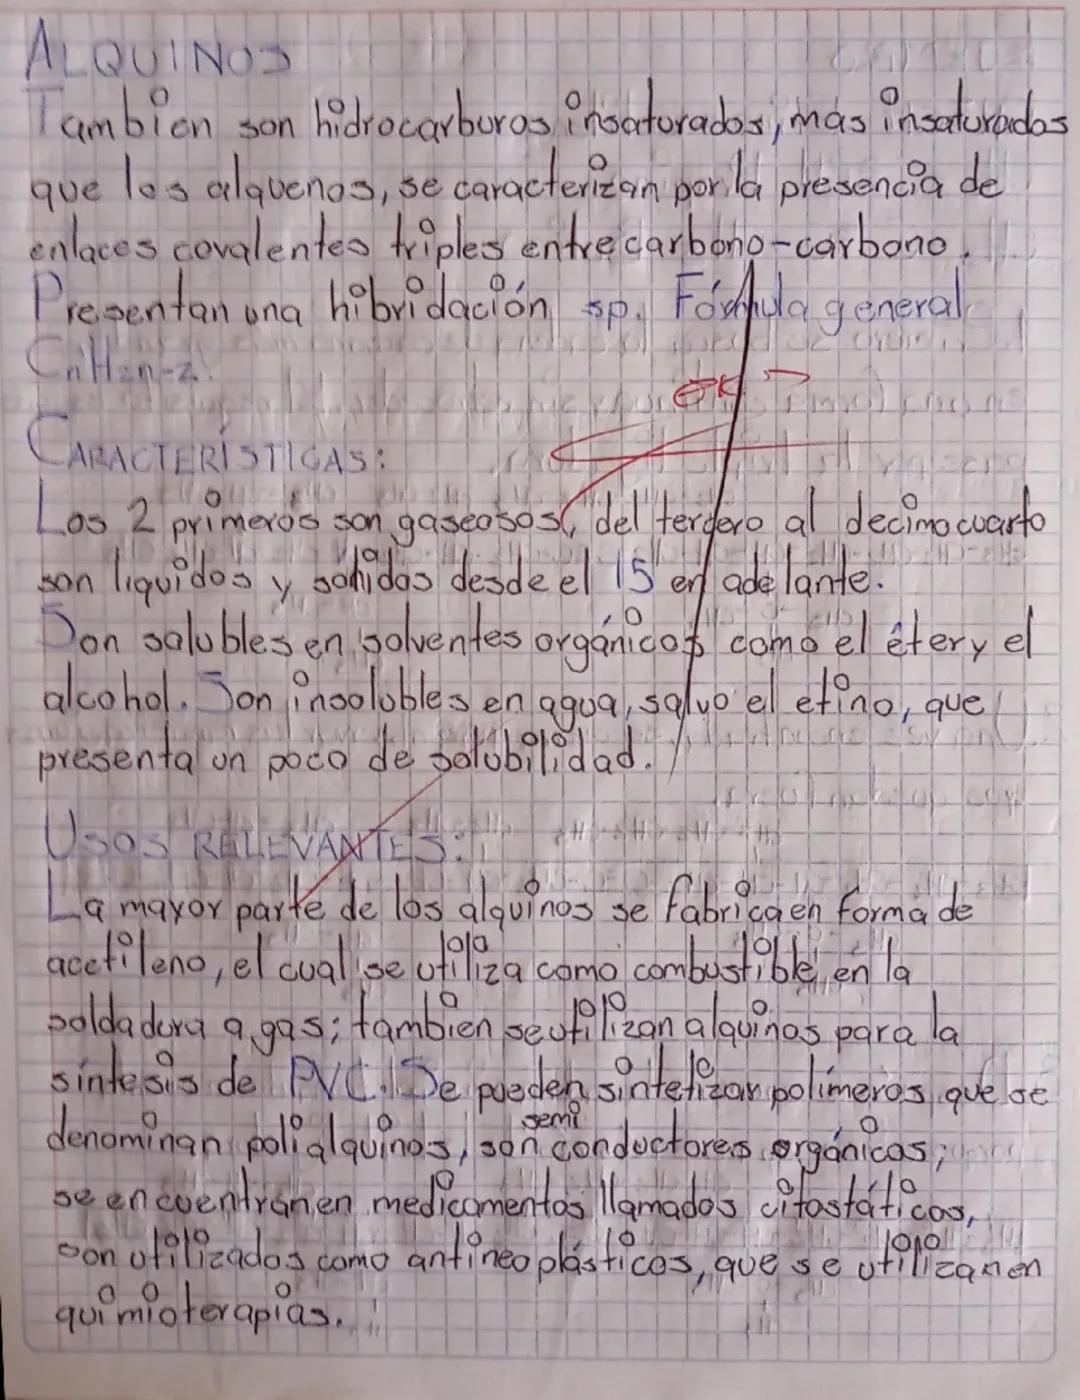 ALQUINOS
Tambien son hidrocarburos insaturados, mas insaturados
que los alquenos, se caracterizan por la presencia de
enlaces covalentes triples entre carbono-carbono.
Presentan una hibridación sp. Fórmula general
CnH2n-2.
CARACTERÍSTICAS:
Los 2 primeros son gaseosos, del tercero al decimocuarto
son liquidos y sólidos desde el 15 en adelante.
Son solubles en solventes orgánicos como el éter y el
alcohol. Son insolubles en agua, salvo el etino, que
presenta un poco de solubilidad.
USOS RELEVANTES:
La mayor parte de los alquinos se fabrica en forma de
acetileno, el cual se utiliza como combustible en la
soldadura a gas; tambien se utilizan alquinos para la
síntesis de PVC. Se pueden sintetizar polímeros que se
denominan polialquinos, son semiconductores orgánicos;
se encuentran en medicamentos llamados citostáticos,
son utilizados como antineoplásticos, que se utilizan en
quimioterapias.